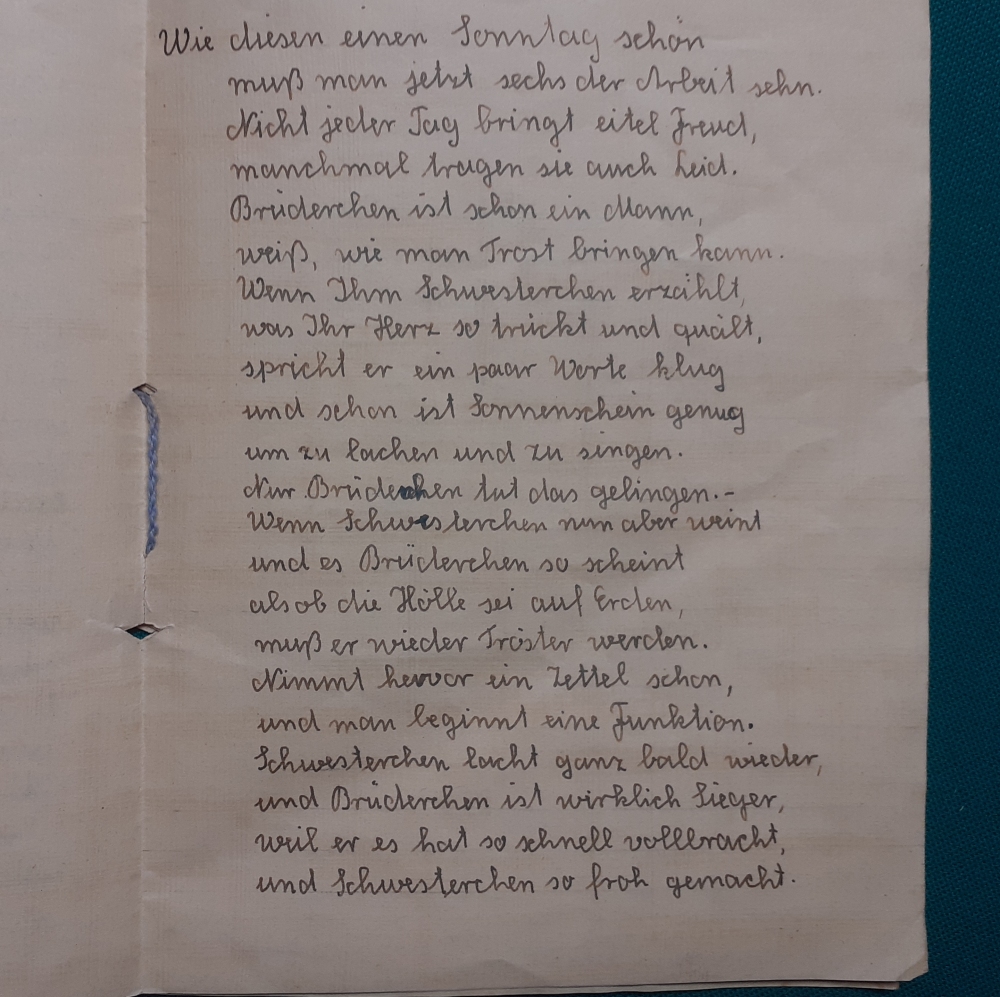 Wie diesen einen Sonntag schön
muß man jetzt sechs der Arbeit sehn.
Nicht jeder Tag bringt eitel Freud,
manchmal tragen sie auch Leid.
Brüderchen ist schon ein Mann,
weiß, wie man Trost bringen kann.
Wenn Ihm Schwesterchen erzählt,
was Ihr Herz so trückt und quält,
spricht er ein paar Worte klug
und schon ist Sonnenschein genug
um zu lachen und zu singen.
Nur Brüderchen tut das gelingen.-
Wenn Schwesterchen nun aber weint
und es Brüderchen so scheint
als ob die Hölle sei auf Erden,
muß er wieder Tröster werden.
Nimmt hervor ein Zettel schon,
und man beginnt eine Funktion.
Schwesterchen lacht ganz bald wieder,
und Brüderchen ist wirklich Sieger,
weil er es hat so schnell vollbracht,
und Schwesterchen so froh gemacht.